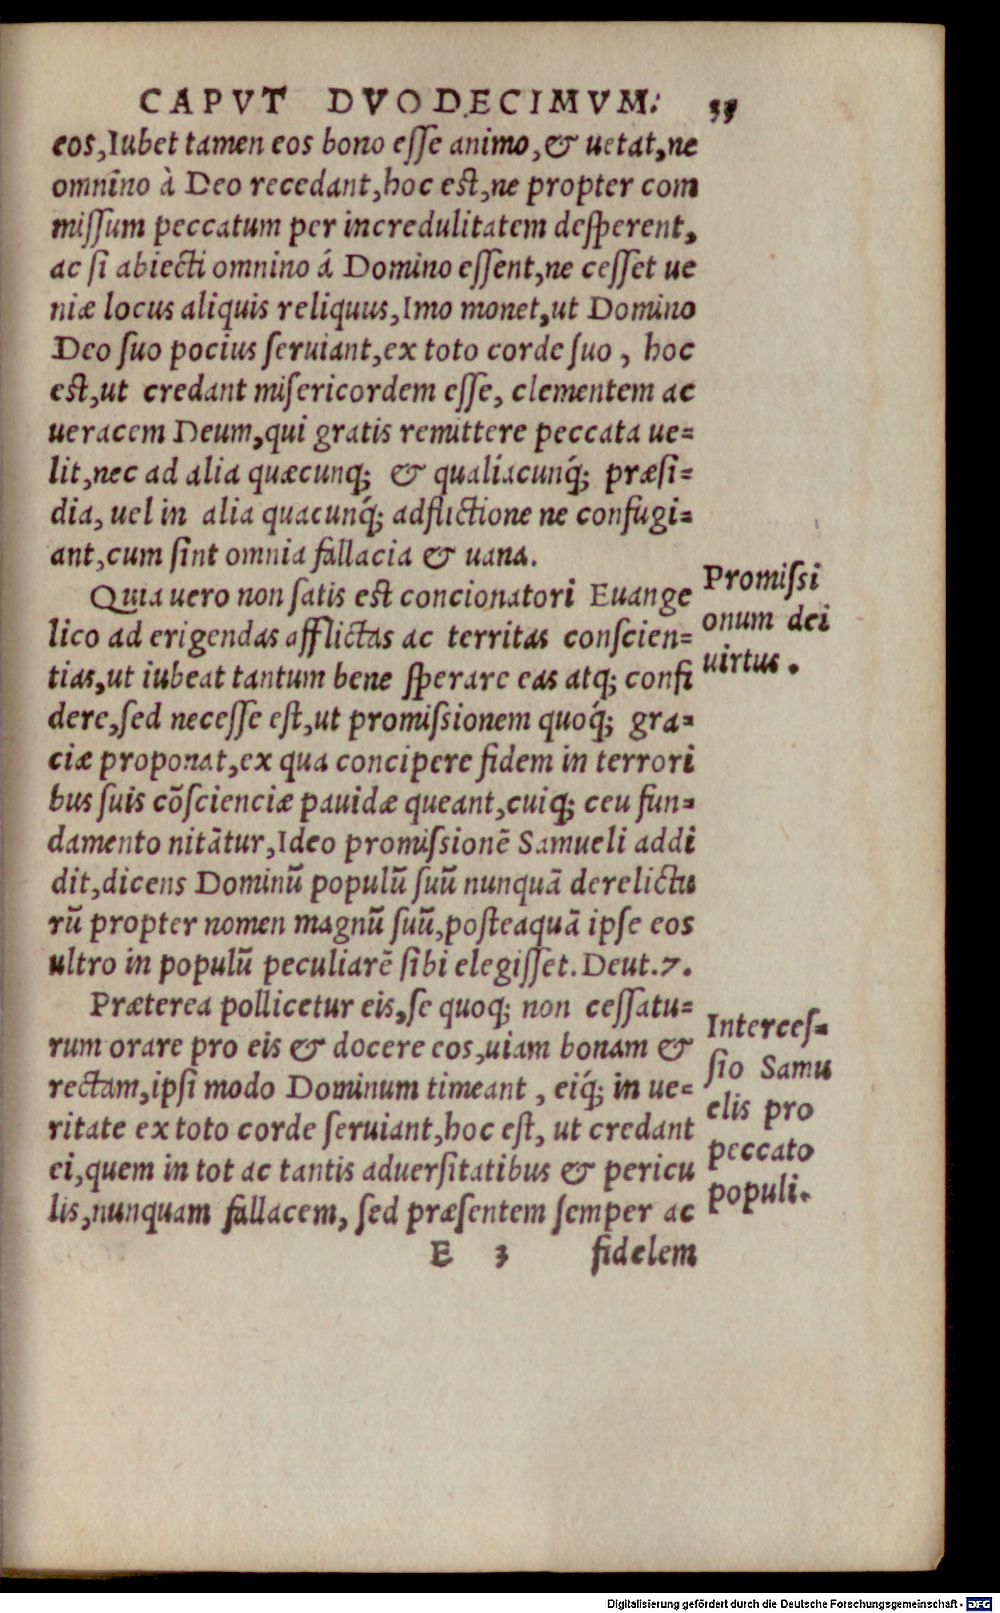 CAPVT DVODECIMVM. 35
eos, Iubet tamen eos bono esse animo, & uetat, ne
omnino à Deo recedant, hoc est, ne propter com
missum peccatum per incredulitatem desperent,
ac si abiecti omnino á Domino essent, ne cesset ue
niæ locus aliquis reliquus, Imo monet, ut Domino
Deo suo pocius seruiant, ex toto corde suo, hoc
est, ut credant misericordem esse, clementem ac
ueracem Deum, qui gratis remittere peccata ue=
lit, nec ad alia quæcunq; & qualiacunq́; præsi=
dia, uel in alia quacunq́; adflictione ne confugi=
ant, cum sint omnia fallacia & uana.
Quia uero non satis est concionatori Euange
lico ad erigendas afflictas ac territas conscien=
tias, ut iubeat tantum bene sperare eas atq; confi
dere, sed necesse est, ut promissionem quoq́; gra=
ciæ proponat, ex qua concipere fidem in terrori
bus suis cõscienciæ pauidæ queant, cuiq; ceu fun=
damento nitãtur, Ideo promissionẽ Samueli addi
dit, dicens Dominũ populũ suũ nunquã derelictu
rũ propter nomen magnũ suũ, posteaquã ipse eos
ultro in populũ peculiarẽ sibi elegisset. Deut. 7.
Præterea pollicetur eis, se quoq; non cessatu=
rum orare pro eis & docere eos, uiam bonam &
rectam, ipsi modo Dominum timeant, eiq́; in ue=
ritate ex toto corde seruiant, hoc est, ut credant
ei, quem in tot ac tantis aduersitatibus & pericu
lis, nunquam fallacem, sed præsentem semper ac
E 3 fidelem
Promissi
onum dei
uirtus.
Interces=
sio Samu
elis pro
peccato
populi.
Digitalisierung gefördert durch die Deutsche Forschungsgemeinschaft - DFG